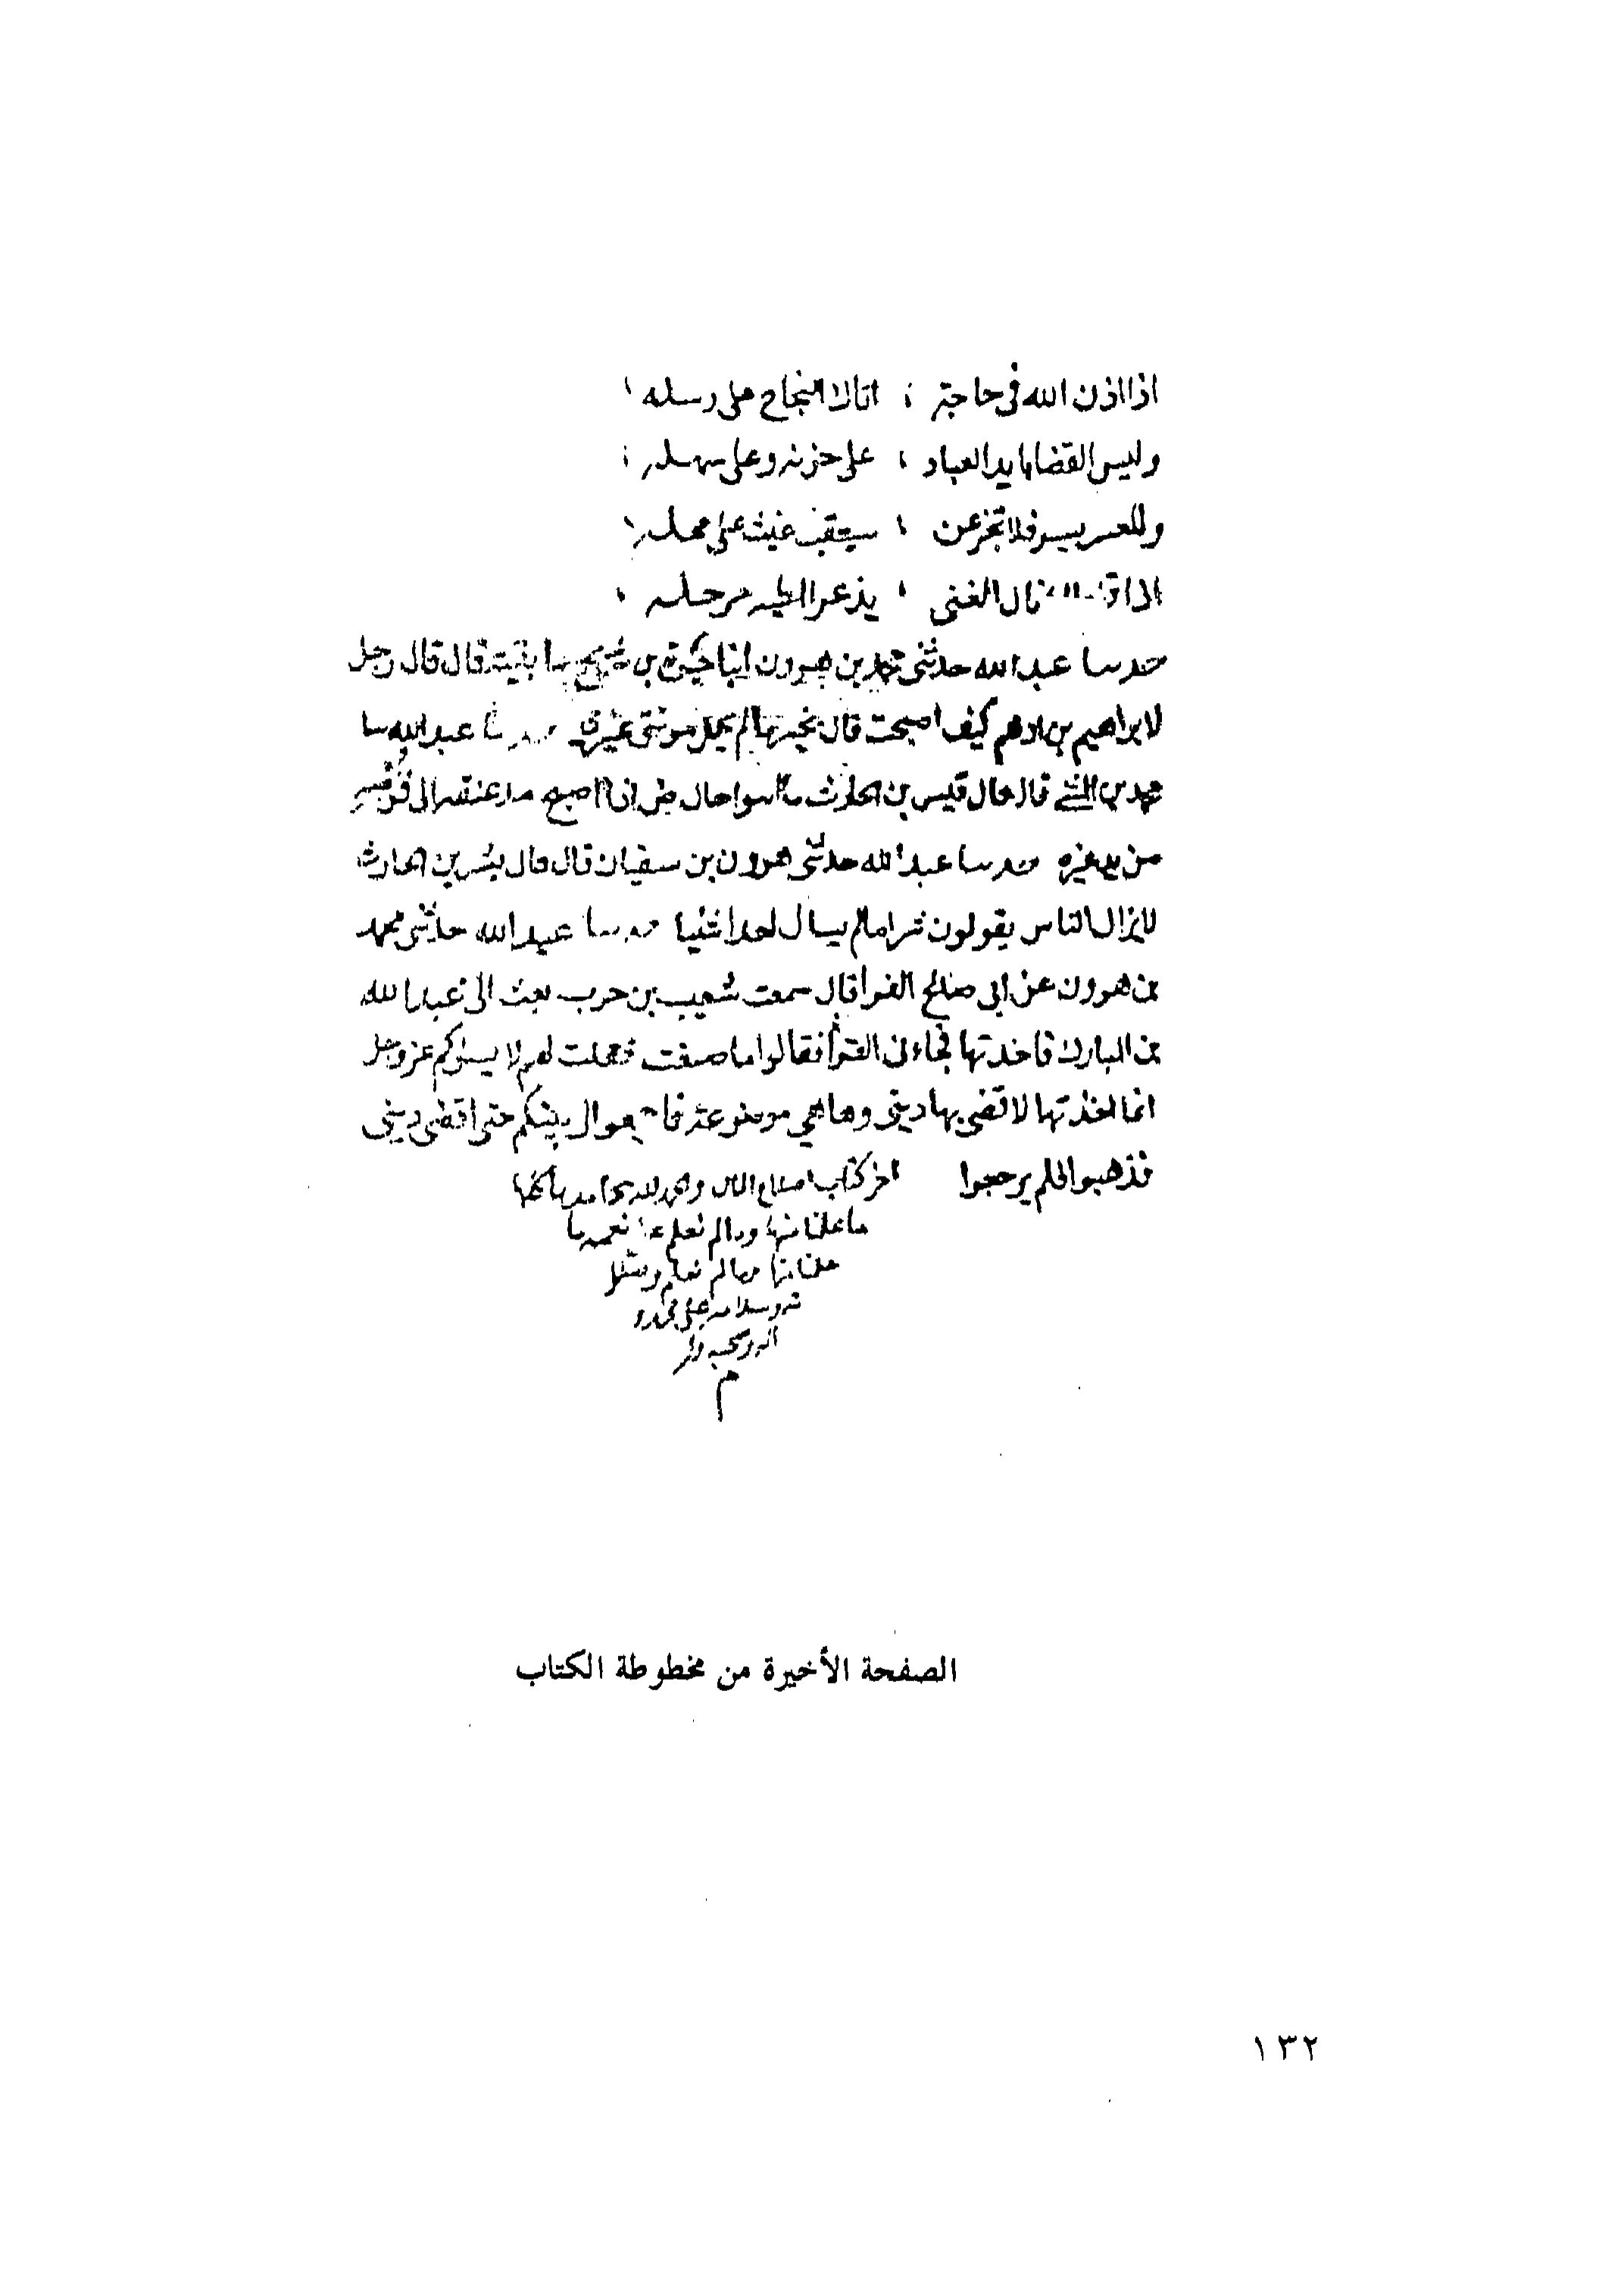 اذا اذن الله في حاجة ؛ اتاك النجاح على رسله
وليس القضا بايد العباد ؛ على حزنه وعلى سهله ؛
وللعسر يسر فلا تجزعن ؛ سيعقب غيث على محله
اذا نال الغنى
حدثنا عبد الله حدثني محمد بن هرون انبا حيوة بن شريح نا بقية قال قال رجل
لابراهيم بن ادهم كيف اصبحت قال بخير ما لم يحمل مونتي غيري حدثنا عبد الله نا
محمد بن المثنى قال قال قيس بن الحارث اسوا حال من اصبح ماد عنقه الى
من يد غيره حدثنا عبد الله حدثني هرون بن سفيان قال قال بشر بن الحارث
لا يزال الناس يقولون مالم يسال احدا شيئا حدثنا عبد الله حدثني محمد
بن هرون عن ابي صالح الفرا قال سمعت شعيب بن حرب بعث الى عبد الله
بن المبارك فاخذتها فجاءني القرا فقالوا ما صنعت فقلت لهم لا يسوكم عز وجل
انما اخذتها لاقضي بها ديني وها هي موضوعة بينكم حتى اقضي ديني
فذهبوا فلم يرجعوا اخر كتاب اصلاح المال والحمد لله بمحامده كلها
ما علمنا منها وما لم نعلم
علمنا منها وما لم نعلم
وسلامه على محمد و
اله وصحبه
م
الصفحة الأخيرة من مخطوطة الكتاب
١٣٢